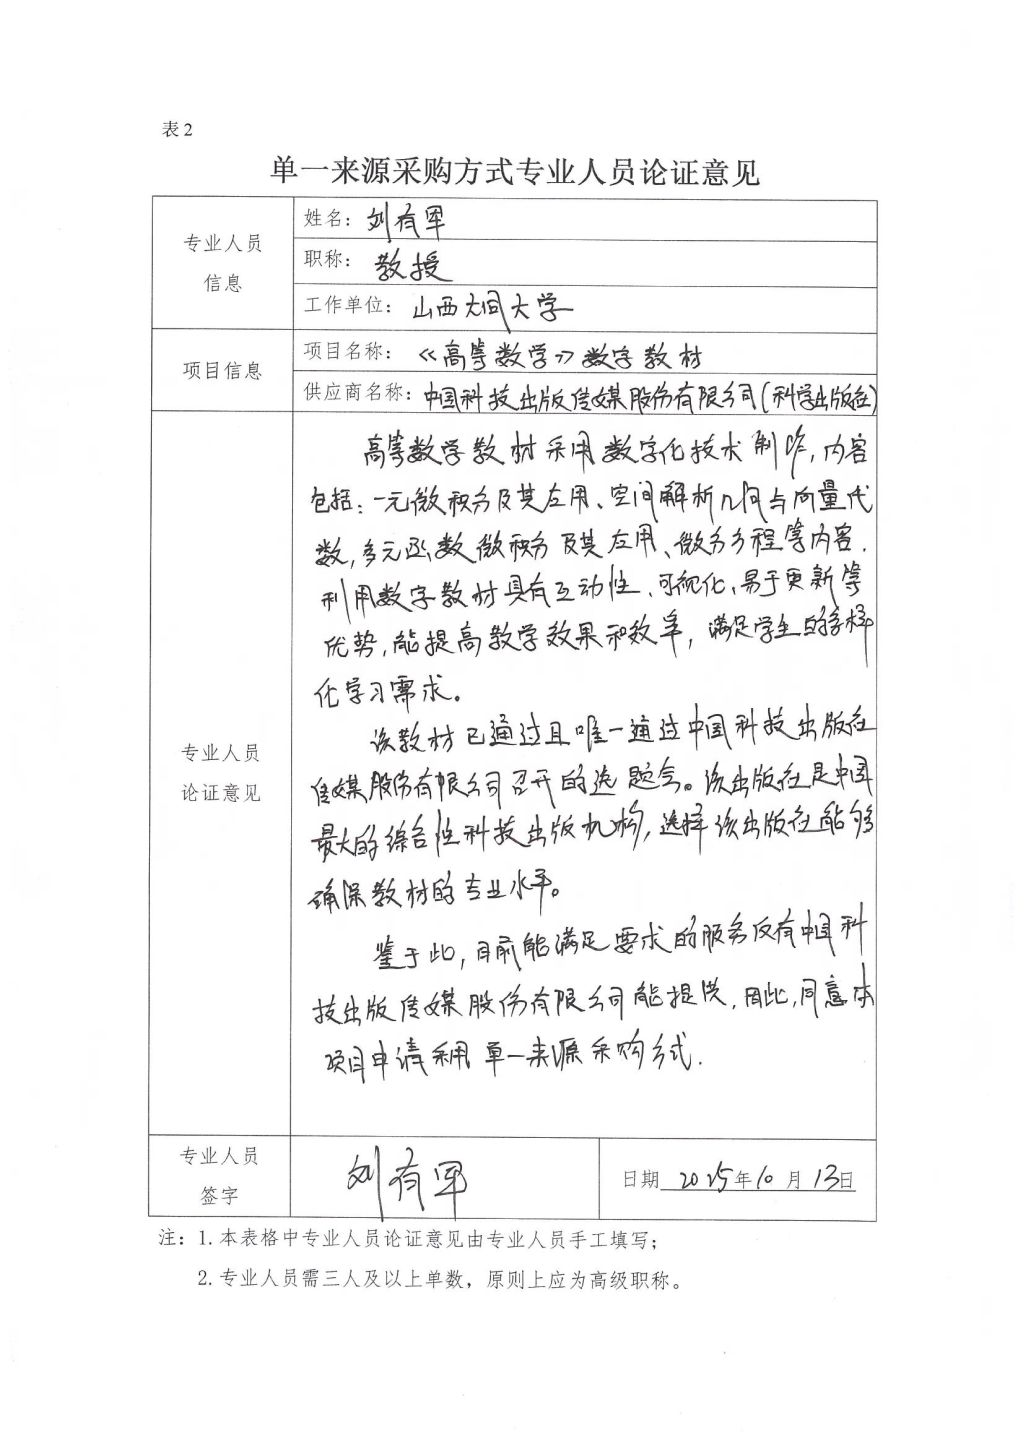 表 2
单一来源采购方式专业人员论证意见
专业人员
信息
姓名：刘有军
职称：教授
工作单位：山西大同大学
项目信息
项目名称：《高等数学》数字教材
供应商名称：中国科技出版传媒股份有限公司(科学出版社)
专业人员
论证意见
高等数学教材采用数字化技术制作，内容
包括：一元微积分及其应用、空间解析几何与向量代
数，多元函数微积分及其应用、微分方程等内容．
利用数字教材具有互动性、可视化、易于更新等
优势，能提高教学效果和效率，满足学生的多样
化学习需求。
该教材已通过且唯一通过中国科技出版社
传媒股份有限公司召开的选题会。该出版社是中国
最大的综合性科技出版机构，选择该出版社能够
确保教材的专业水平。
鉴于此，目前能满足要求的服务仅有中国科
技出版传媒股份有限公司能提供，因此，同意本
项目申请采用单一来源采购方式．
专业人员
签字
刘有军
日期 2025年10月13日
注：1.本表格中专业人员论证意见由专业人员手工填写；
2.专业人员需三人及以上单数，原则上应为高级职称。